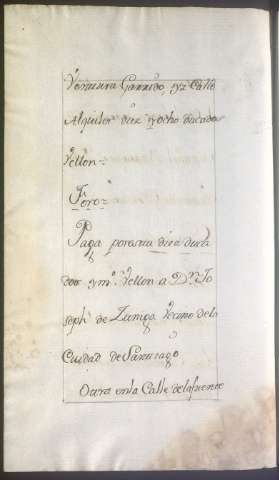 Ventura Garrido, yz Calle
Alquiler diez y ocho ducados
Vellon=
Foro=
Paga por esta diez duca
dos y mº. Vellon a Dⁿ. Jo
seph de Zuniga Vecino dela
Ciudad de Santiago
Otra en la Calle dela fuente